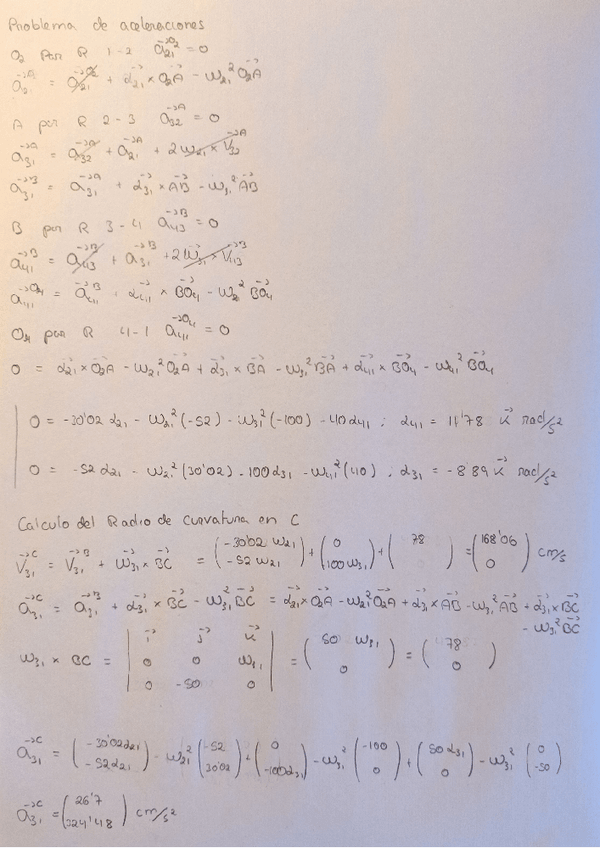 Problema de aceleraciones
O₂ Par R 1-2 a⃗₂₁^O₂ = 0
a⃗₂₁^A = a⃗₂₁^O₂ + α⃗₂₁ × O₂A⃗ - ω₂₁² O₂A⃗
A par R 2-3 a⃗₃₂^A = 0
a⃗₃₁^A = a⃗₃₂^A + a⃗₂₁^A + 2ω⃗₂₁ × V⃗₃₂^A
a⃗₃₁^B = a⃗₃₁^A + α⃗₃₁ × AB⃗ - ω₃₁² AB⃗
B par R 3-4 a⃗₄₃^B = 0
a⃗₄₁^B = a⃗₄₃^B + a⃗₃₁^B + 2ω⃗₃₁ × V⃗₄₃^B
a⃗₄₁^O₄ = a⃗₄₁^B + α⃗₄₁ × BO₄⃗ - ω₂² BO₄⃗
O₄ par R 4-1 a⃗₄₁^O₄ = 0
0 = α⃗₂₁ × O₂A⃗ - ω₂₁² O₂A⃗ + α⃗₃₁ × BA⃗ - ω₃₁² BA⃗ + α⃗₄₁ × BO₄⃗ - ω₄₁² BO₄⃗
0 = -30'02 α₂₁ - ω₂₁² (-52) - ω₃₁² (-100) - 40α₄₁ ; α₄₁ = 11'78 k⃗ rad/s²
0 = -52 α₂₁ - ω₂₁² (30'02) - 100α₃₁ - ω₄₁² (40) ; α₃₁ = -8'89 k⃗ rad/s²
Calculo del Radio de curvatura en C
V⃗₃₁^C = V⃗₃₁^B + ω⃗₃₁ × BC⃗ = (-30'02 ω₂₁ / -52 ω₂₁) + (0 / 100ω₃₁) + (78 / ) = (168'06 / 0) cm/s
a⃗₃₁^C = a⃗₃₁^B + α⃗₃₁ × BC⃗ - ω₃₁² BC⃗ = α⃗₂₁ × O₂A⃗ - ω₂₁² O₂A⃗ + α⃗₃₁ × AB⃗ - ω₃₁² AB⃗ + α⃗₃₁ × BC⃗
- ω₃₁² BC⃗
ω₃₁ × BC = | i⃗ j⃗ k⃗ / 0 0 ω₃₁ / 0 -50 0 | = (50 ω₃₁ / 0) = (78 / 0)
a⃗₃₁^C = (-30'02α₂₁ / -52α₂₁) - ω₂₁² (-52 / 30'02) + (0 / -100α₃₁) - ω₃₁² (-100 / 0) + (50α₃₁ / 0) - ω₃₁² (0 / -50)
a⃗₃₁^C = (26'7 / 324'48) cm/s²